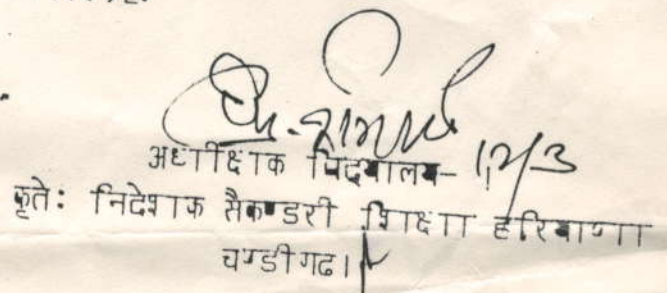 अधीक्षक विद्यालय- 12/3
कृते: निदेशक सैकण्डरी शिक्षा हरियाणा
चण्डीगढ।